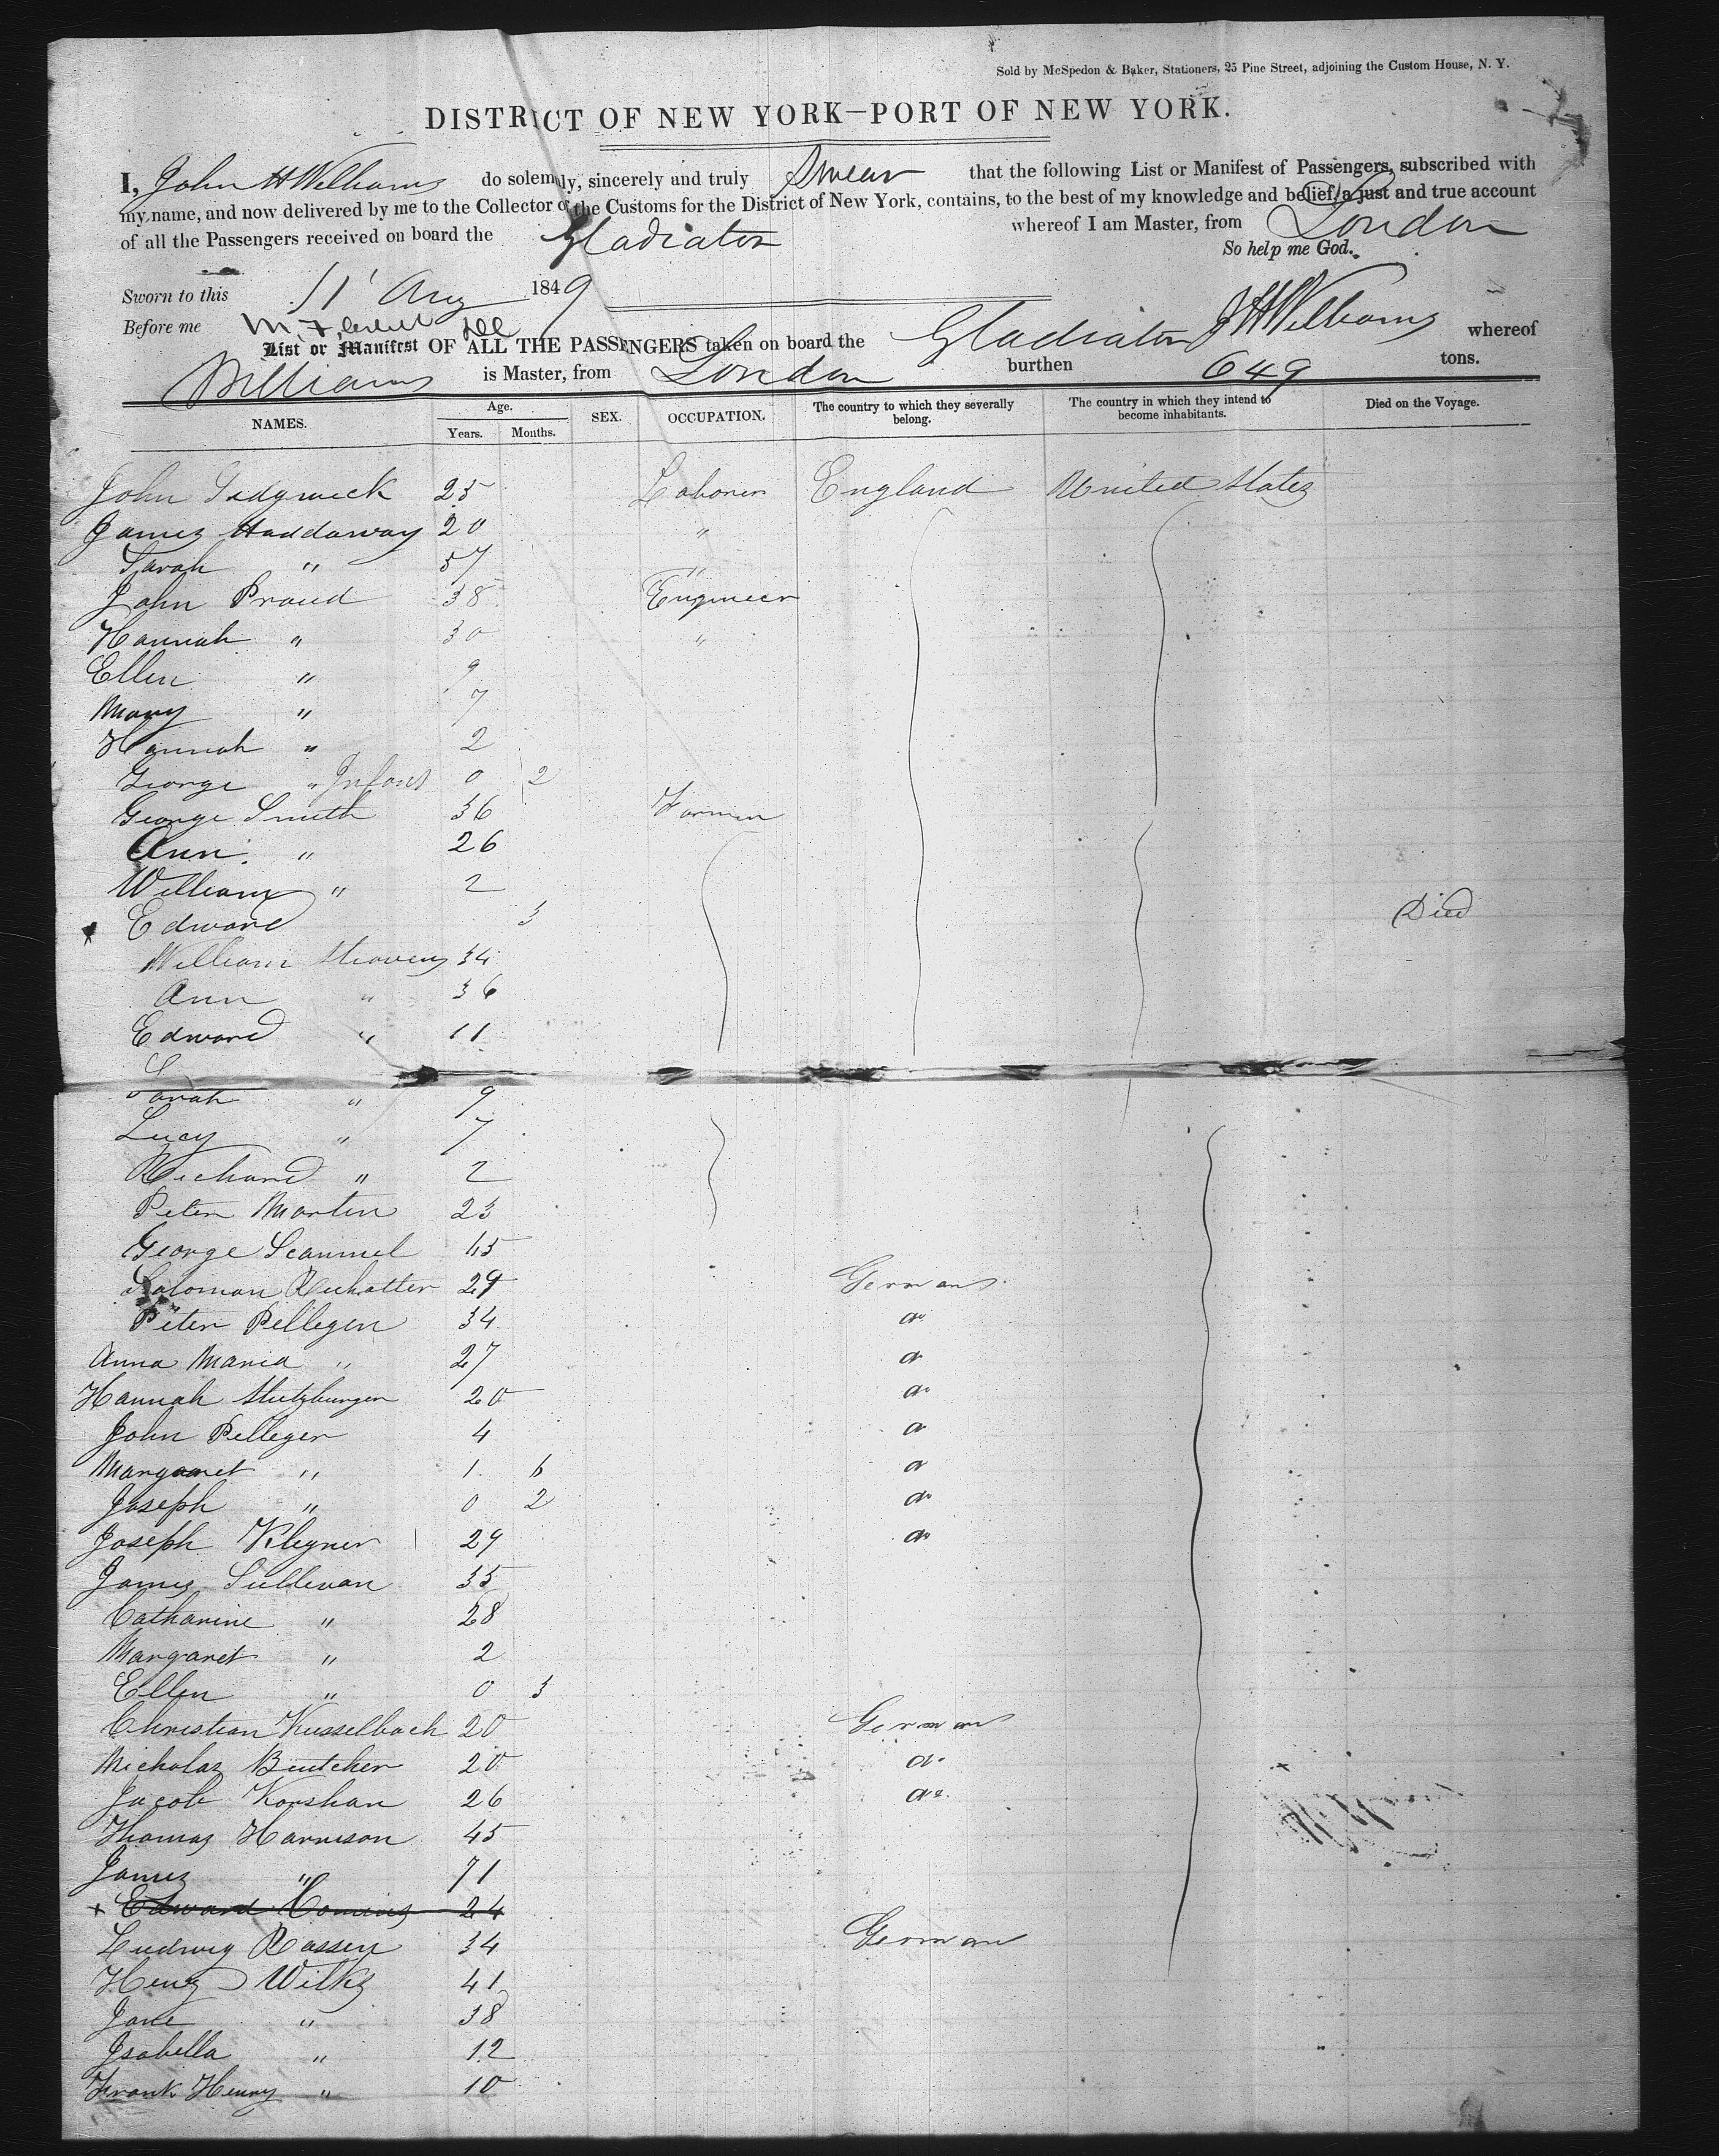 Sold by McSpedon & Baker, Stationers, 25 Pine Street, adjoining the Custom House, N. Y.
DISTRICT OF NEW YORK—PORT OF NEW YORK.
I, John H Williams do solemnly, sincerely and truly Swear that the following List or Manifest of Passengers, subscribed with
my name, and now delivered by me to the Collector of the Customs for the District of New York, contains, to the best of my knowledge and belief, a just and true account
of all the Passengers received on board the Gladiator whereof I am Master, from London
So help me God.
Sworn to this 11 Aug 1849
Before me J H Williams
List or Manifest OF ALL THE PASSENGERS taken on board the Gladiator whereof
Williams is Master, from London burthen 649 tons.
NAMES. Age. Years. Months. SEX. OCCUPATION. The country to which they severally belong. The country in which they intend to become inhabitants. Died on the Voyage.
John Sedgwick 25 Laborer England United States
James Haddaway 20 "
Sarah " 57 "
John Proud 38 Engineer
Hannah " 30 "
Ellen " 9
Mary " 7
Hannah " 2
George " Infant 0 2
George Smith 36 Farmer
Ann " 26
William " 2
Edward 3 Died
William 34
Ann " 36
Edward " 11
Sarah " 9
Lucy " 7
Richard " 2
Peter Martin 23
George Scammel
Solomon 29 Germans
Peter Pellegen 34
Anna Maria " 27
Hannah 20
John Pelleger 4
Margaret " 1 6
Joseph " 0 2
Joseph Klegner 29
James Sullivan 35
Catharine " 28
Margaret " 2
Ellen " 0 3
Christian Kusselbach 20 Germans
Nicholas Beutcher 20
Jacob Korshan 26
Thomas Harrison 45
James " 71
+ Edward 24
Ludwig Rassen 34 German
Henry Wilks 41
Jane " 38
Isabella " 12
Frank Henry " 10